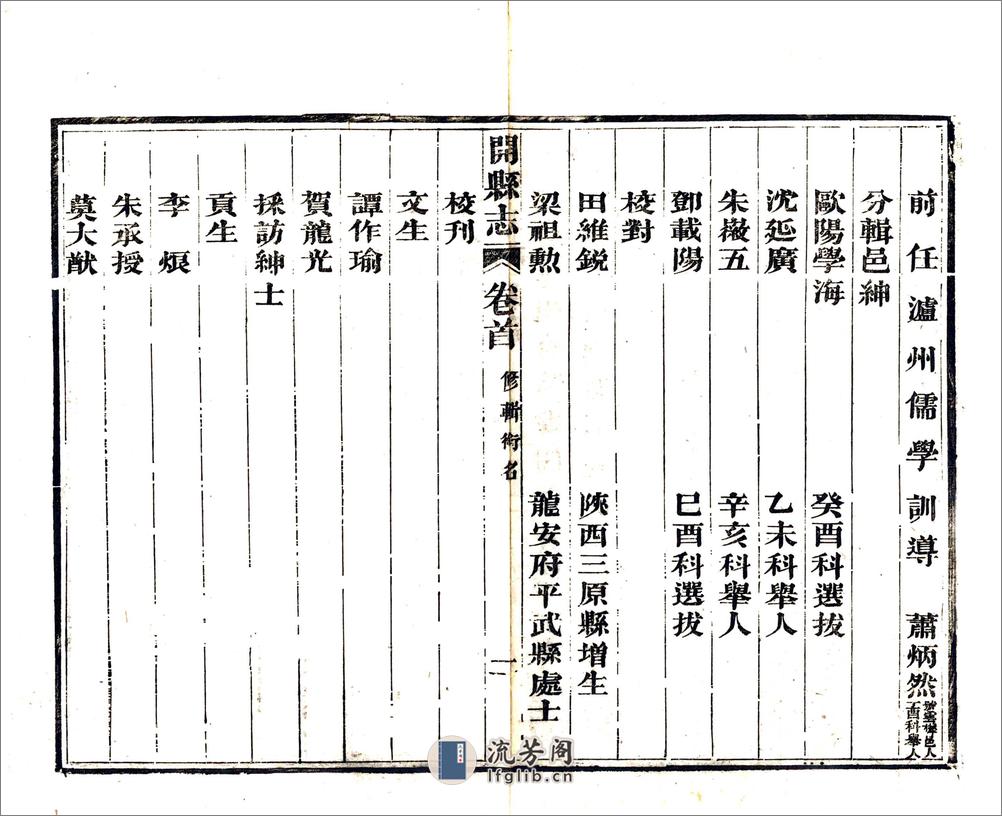 前任瀘州儒學訓導 蕭炳然 邑人酉科舉人
分輯邑紳
歐陽學海 癸酉科選拔
沈延廣 乙未科舉人
朱嶶五 辛亥科舉人
鄧載陽 巳酉科選拔
校對
田維鋭 陝西三原縣增生
梁祖勲 龍安府平武縣處士
開縣志 卷首 修輯銜名 二
校刊
文生
譚作瑜
賀龍光
採訪紳士
貢生
李烺
朱承授
莫大猷
流芳阁
lfglib.cn